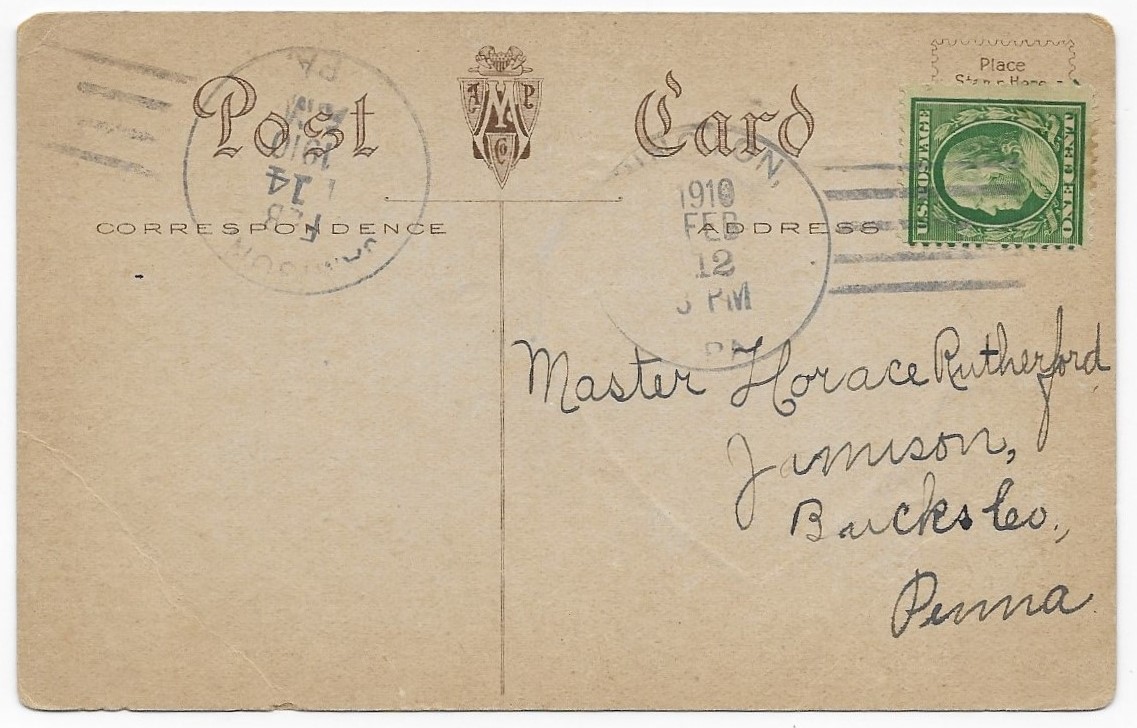 Post Card
Place
Stamp Here
A M P
Co
CORRESPONDENCE
ADDRESS
U.S. POSTAGE
ONE CENT
PA.
1910
14
FEB
1910
FEB
12
PM
PA
Master Horace Rutherford
Jamison,
Bucks Co.,
Penna